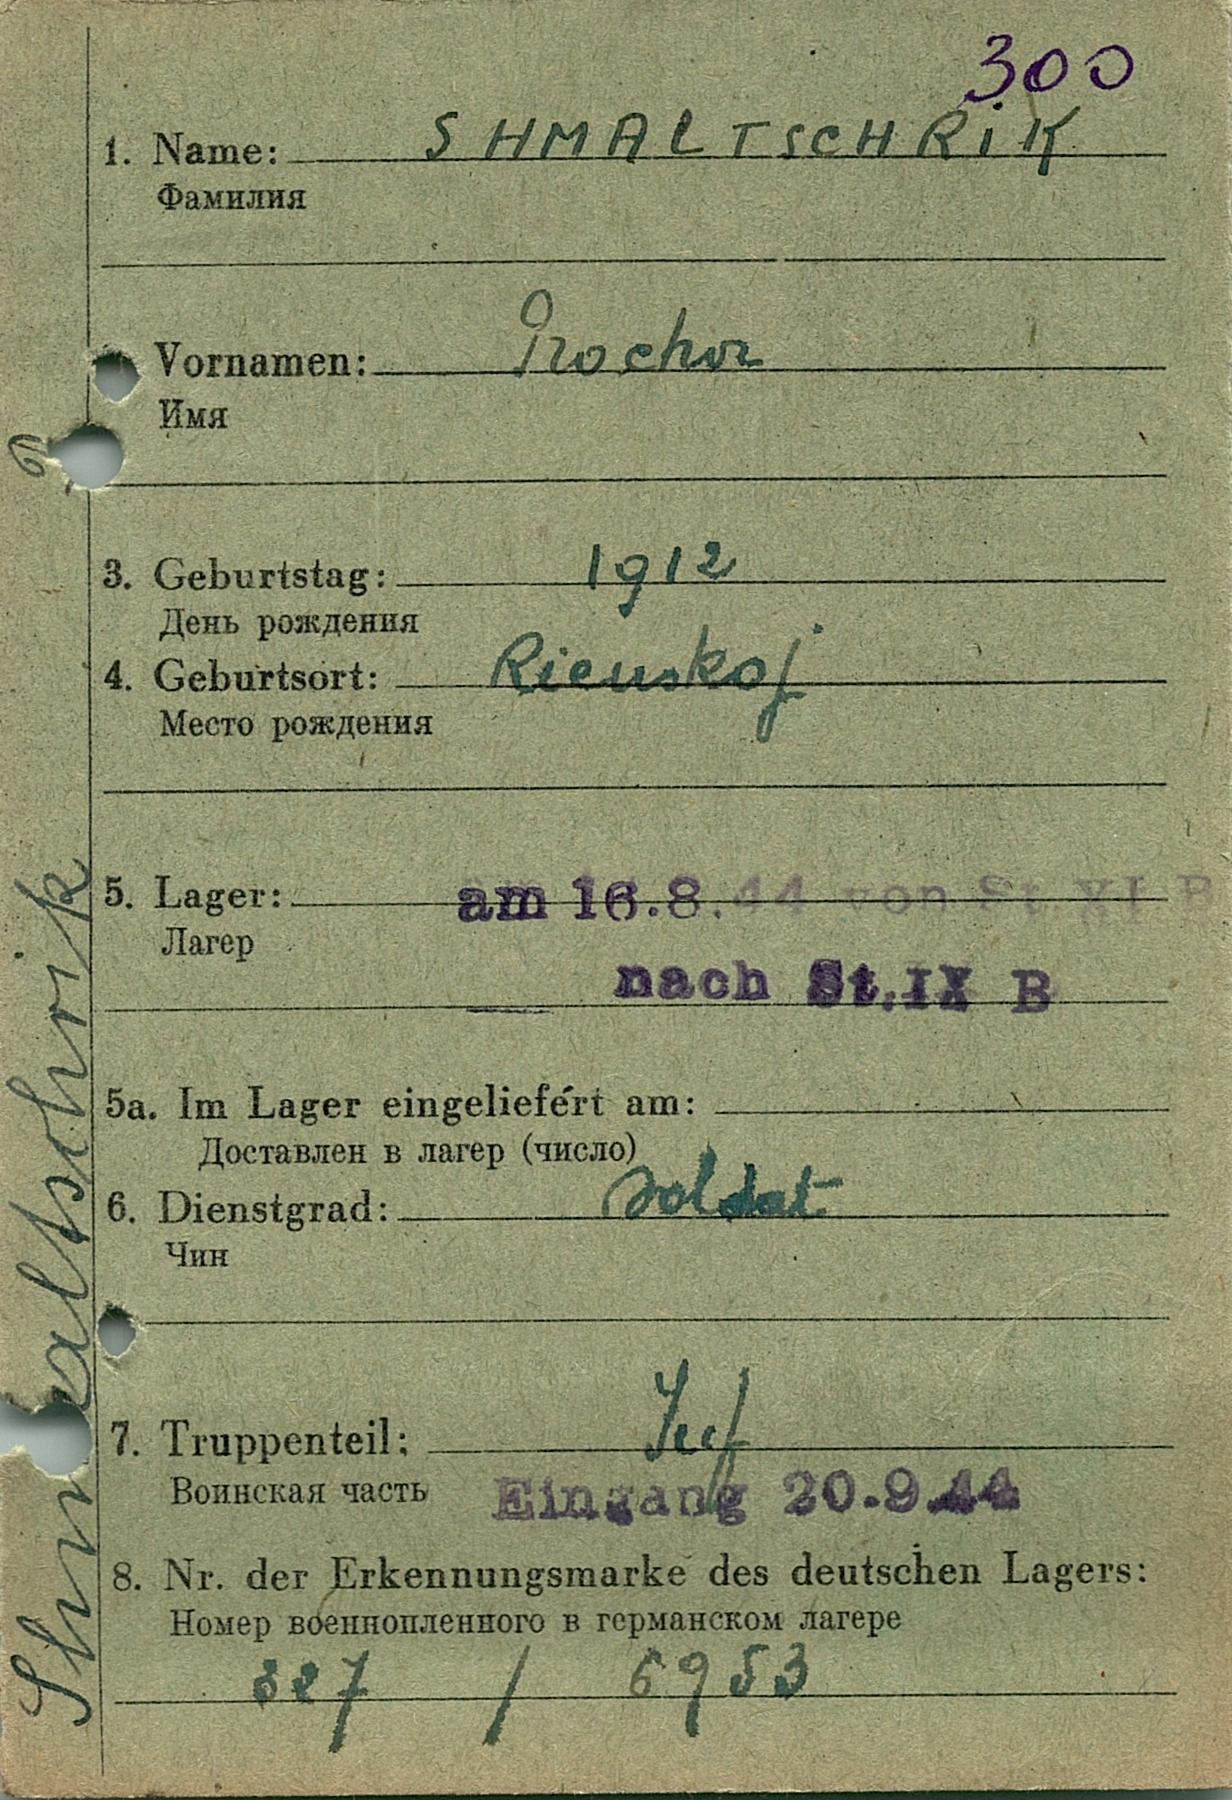 300
1. Name: SHMALTSCHRIK
Фамилия
Vornamen: Prochor
Имя
3. Geburtstag: 1912
День рождения
4. Geburtsort: Rienskoj
Место рождения
5. Lager: am 16.8.44 von St. XI B
Лагер
nach St. IX B
5a. Im Lager eingeliefert am:
Доставлен в лагер (число)
6. Dienstgrad: Soldat
Чин
7. Truppenteil: Inf
Воинская часть Eingang 20.9.44
8. Nr. der Erkennungsmarke des deutschen Lagers:
Номер военнопленного в германском лагере
327 / 6953
Shmaltschrik